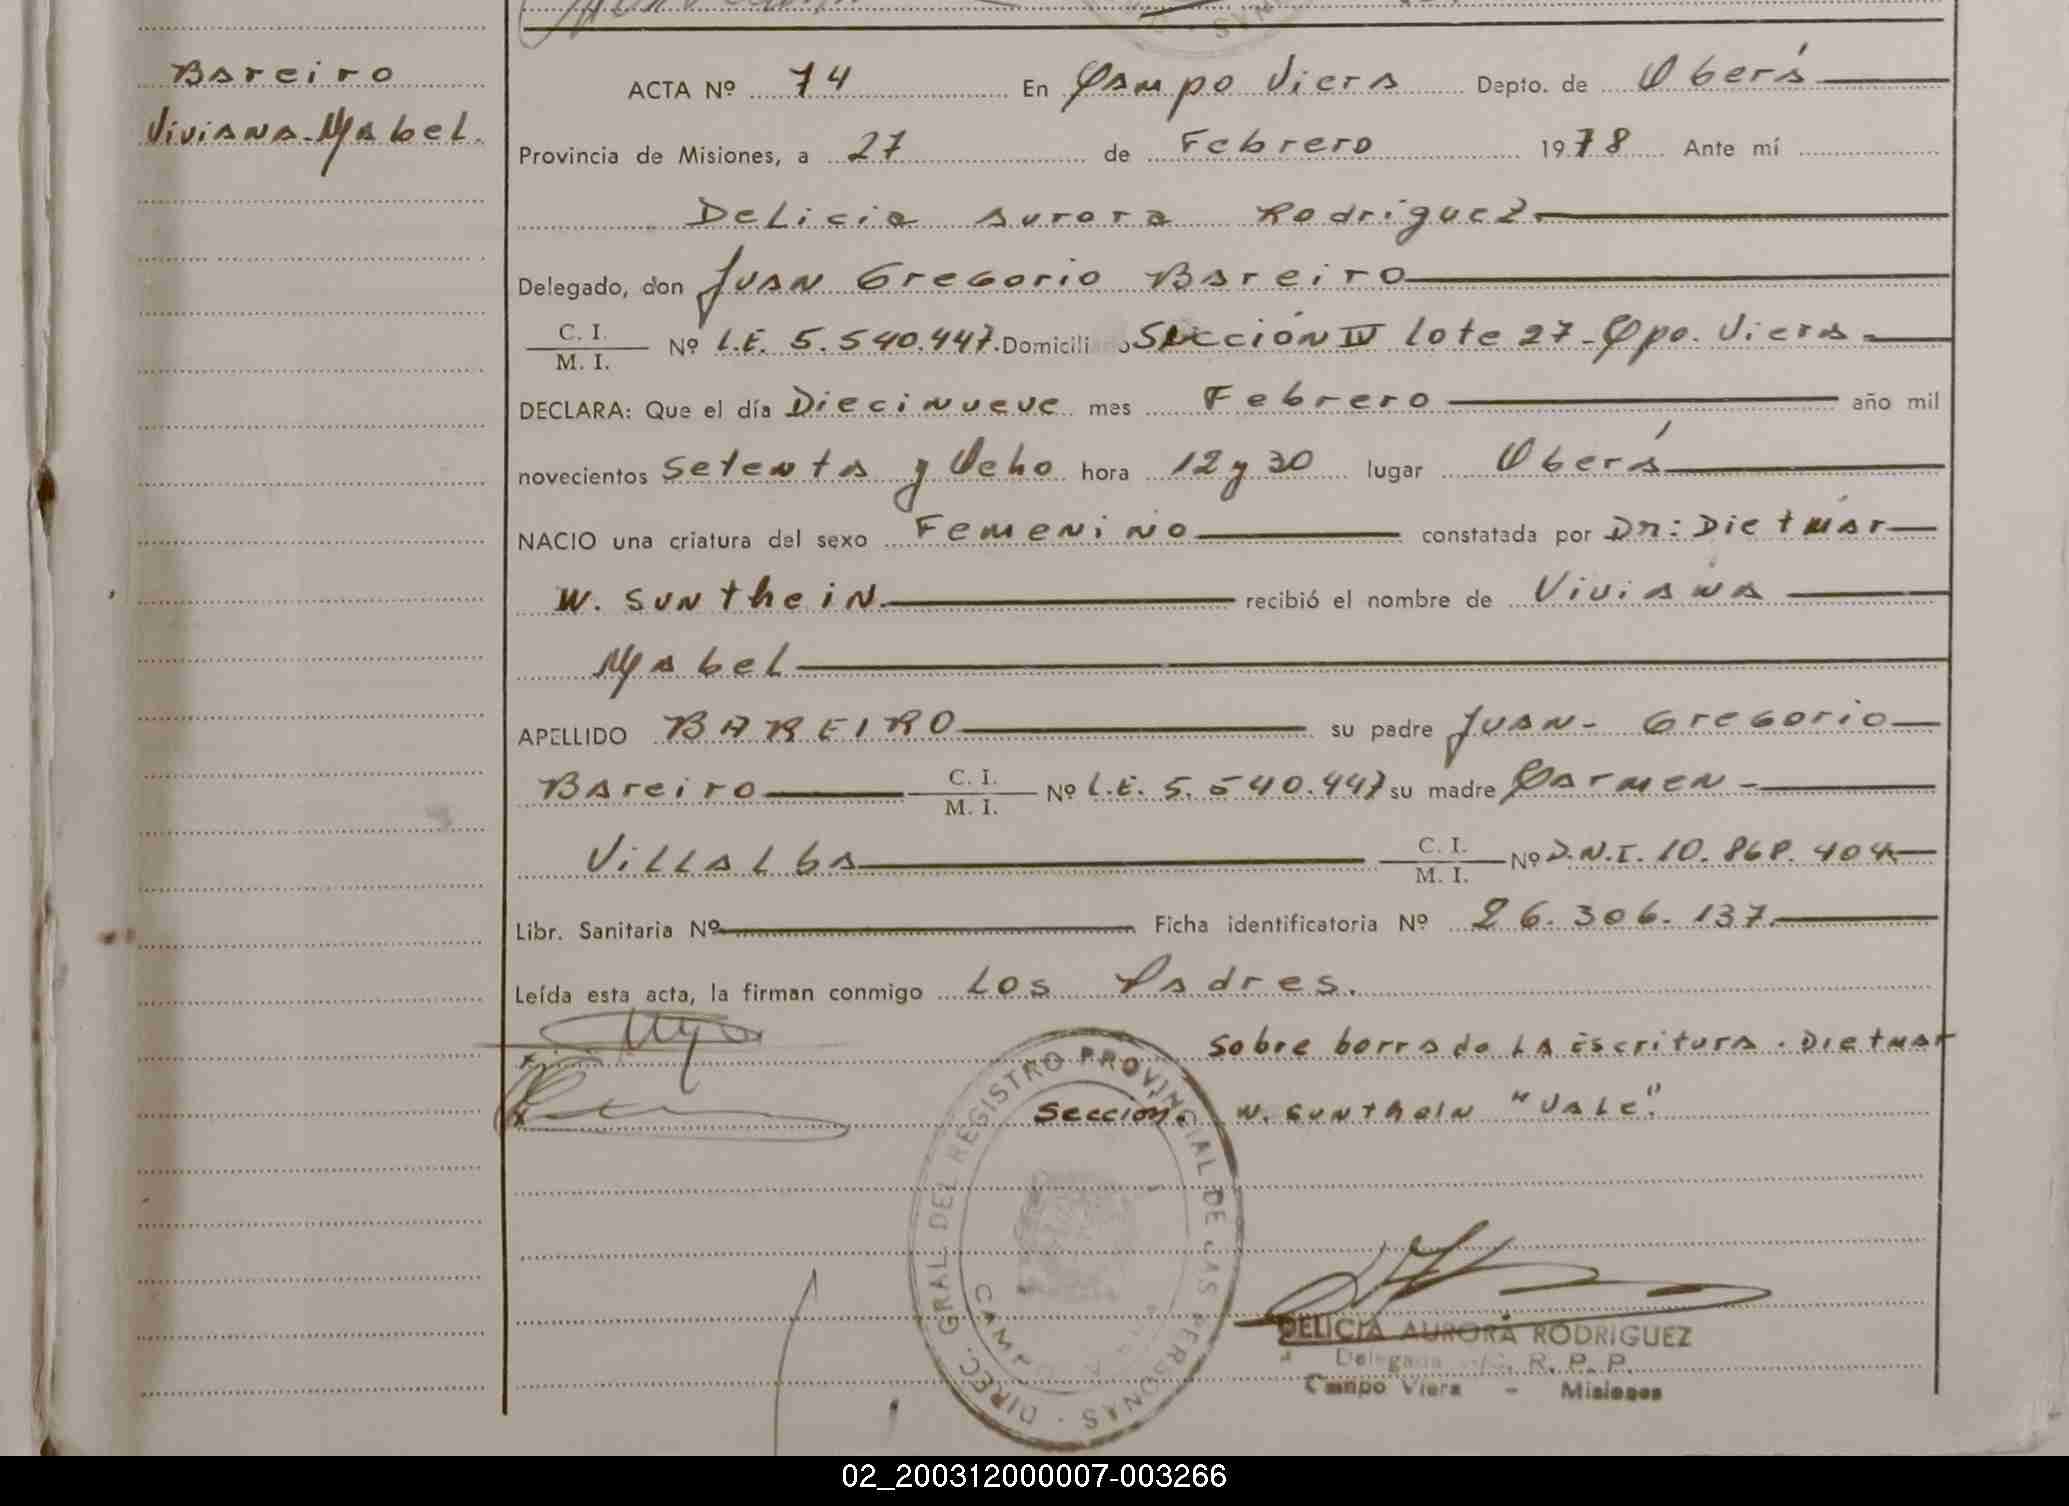 Bareiro
Viviana-Mabel.
ACTA Nº 74 En Campo Viera Depto. de Oberá
Provincia de Misiones, a 27 de Febrero 1978 Ante mí
Delicia Aurora Rodriguez
Delegado, don Juan Gregorio Bareiro
C. I.
M. I.
Nº L.E. 5.540.447. Domicili o Sección IV lote 27-Cpo. Viera
DECLARA: Que el día Diecinueve mes Febrero año mil
novecientos Setenta y Ocho hora 12 y 30 lugar Oberá
NACIO una criatura del sexo Femenino constatada por Dr: Dietmar
W. Sunthein. recibió el nombre de Viviana
Mabel
APELLIDO BAREIRO su padre Juan- Gregorio
Bareiro C. I. M. I. Nº L.E. 5.540.447 su madre Carmen-
Villalba C. I. M. I. Nº D.N.I. 10.868.404
Libr. Sanitaria Nº Ficha identificatoria Nº 26.306.137.
Leída esta acta, la firman conmigo Los Padres.
Sobre borrado La Escritura. Dietmar
Sección. W. Sunthein "Vale".
DIREC. GRAL. DEL REGISTRO PROVINCIAL DE LAS PERSONAS
DELICIA AURORA RODRIGUEZ
Delegada R. P. P.
Campo Viera - Misiones
02_200312000007-003266